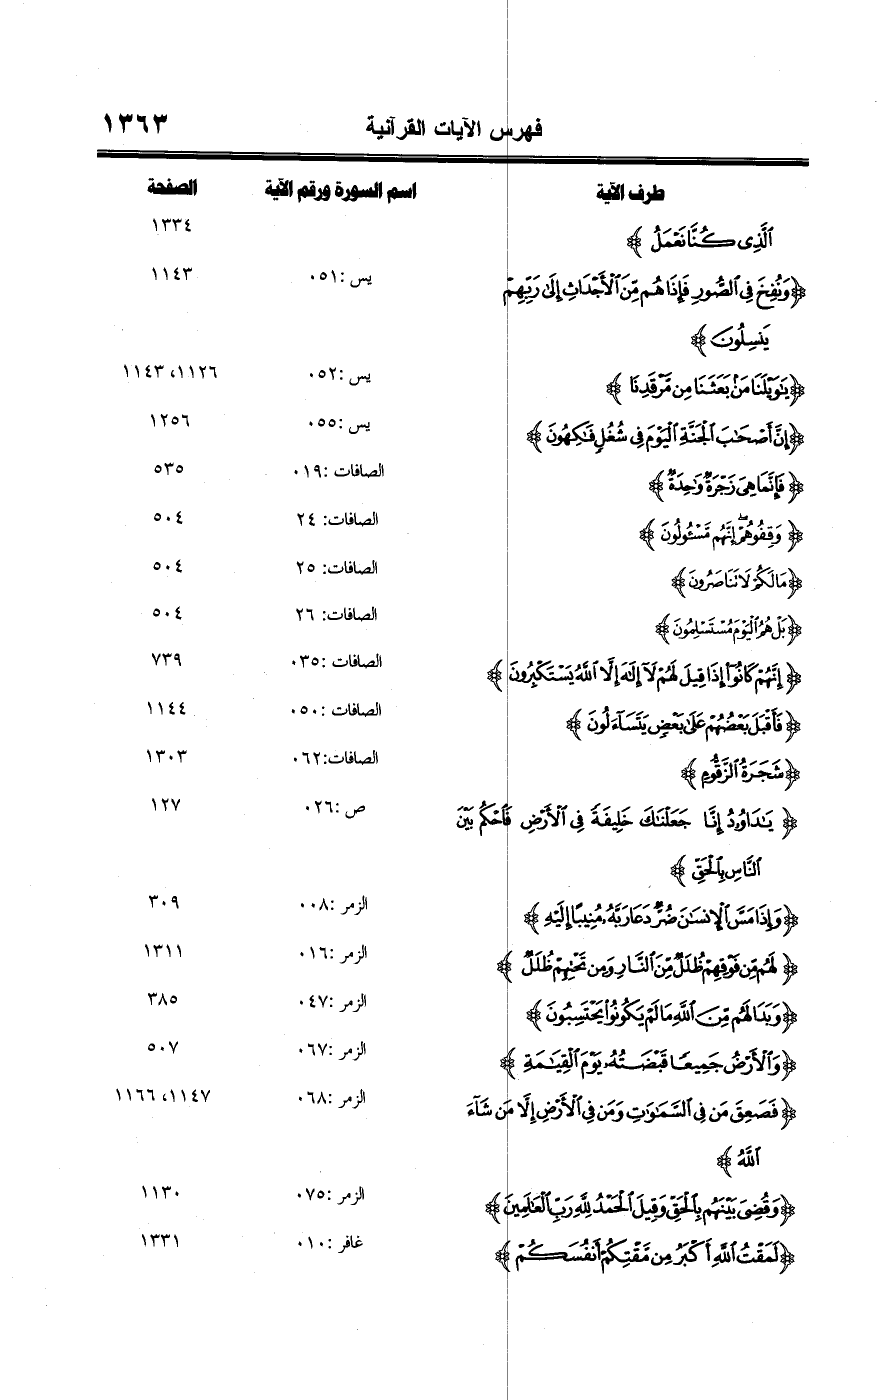 فهرس الآيات القرآنية ١٣٦٣
طرف الآية اسم السورة ورقم الآية الصفحة
ٱلَّذِى كُنَّا نَعْمَلُ ﴾ ١٣٣٤
﴿ وَنُفِخَ فِى ٱلصُّورِ فَإِذَا هُم مِّنَ ٱلْأَجْدَاثِ إِلَىٰ رَبِّهِمْ يس :٠٥١ ١١٤٣
يَنسِلُونَ ﴾
﴿ يَٰوَيْلَنَا مَنۢ بَعَثَنَا مِن مَّرْقَدِنَا ﴾ يس :٠٥٢ ١١٢٦، ١١٤٣
﴿ إِنَّ أَصْحَٰبَ ٱلْجَنَّةِ ٱلْيَوْمَ فِى شُغُلٍ فَٰكِهُونَ ﴾ يس :٠٥٥ ١٢٥٦
﴿ فَإِنَّمَا هِىَ زَجْرَةٌ وَٰحِدَةٌ ﴾ الصافات :٠١٩ ٥٣٥
﴿ وَقِفُوهُمْ ۖ إِنَّهُم مَّسْـُٔولُونَ ﴾ الصافات: ٢٤ ٥٠٤
﴿ مَا لَكُمْ لَا تَنَاصَرُونَ ﴾ الصافات: ٢٥ ٥٠٤
﴿ بَلْ هُمُ ٱلْيَوْمَ مُسْتَسْلِمُونَ ﴾ الصافات: ٢٦ ٥٠٤
﴿ إِنَّهُمْ كَانُوٓا۟ إِذَا قِيلَ لَهُمْ لَآ إِلَٰهَ إِلَّا ٱللَّهُ يَسْتَكْبِرُونَ ﴾ الصافات :٠٣٥ ٧٣٩
﴿ فَأَقْبَلَ بَعْضُهُمْ عَلَىٰ بَعْضٍ يَتَسَآءَلُونَ ﴾ الصافات :٠٥٠ ١١٤٤
﴿ شَجَرَةُ ٱلزَّقُّومِ ﴾ الصافات:٠٦٢ ١٣٠٣
﴿ يَٰدَاوُۥدُ إِنَّا جَعَلْنَٰكَ خَلِيفَةً فِى ٱلْأَرْضِ فَٱحْكُم بَيْنَ ص :٠٢٦ ١٢٧
ٱلنَّاسِ بِٱلْحَقِّ ﴾
﴿ وَإِذَا مَسَّ ٱلْإِنسَٰنَ ضُرٌّ دَعَا رَبَّهُۥ مُنِيبًا إِلَيْهِ ﴾ الزمر :٠٠٨ ٣٠٩
﴿ لَهُم مِّن فَوْقِهِمْ ظُلَلٌ مِّنَ ٱلنَّارِ وَمِن تَحْتِهِمْ ظُلَلٌ ﴾ الزمر :٠١٦ ١٣١١
﴿ وَبَدَا لَهُم مِّنَ ٱللَّهِ مَا لَمْ يَكُونُوا۟ يَحْتَسِبُونَ ﴾ الزمر :٠٤٧ ٣٨٥
﴿ وَٱلْأَرْضُ جَمِيعًا قَبْضَتُهُۥ يَوْمَ ٱلْقِيَٰمَةِ ﴾ الزمر :٠٦٧ ٥٠٧
﴿ فَصَعِقَ مَن فِى ٱلسَّمَٰوَٰتِ وَمَن فِى ٱلْأَرْضِ إِلَّا مَن شَآءَ الزمر :٠٦٨ ١١٤٧، ١١٦٦
ٱللَّهُ ﴾
﴿ وَقُضِىَ بَيْنَهُم بِٱلْحَقِّ وَقِيلَ ٱلْحَمْدُ لِلَّهِ رَبِّ ٱلْعَٰلَمِينَ ﴾ الزمر :٠٧٥ ١١٣٠
﴿ لَمَقْتُ ٱللَّهِ أَكْبَرُ مِن مَّقْتِكُمْ أَنفُسَكُمْ ﴾ غافر :٠١٠ ١٣٣١